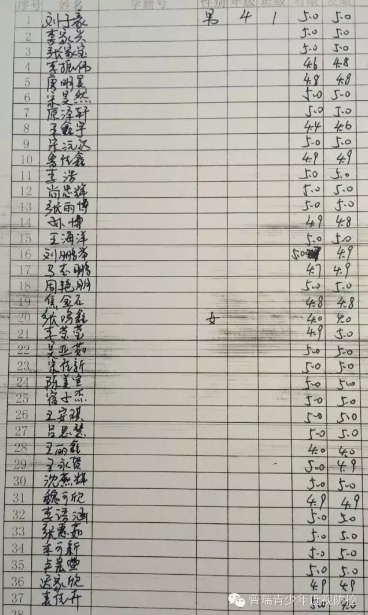 序号 姓名 学籍号 性别 年级 班级
1 刘子豪 男 4 1 5.0 5.0
2 李家兴 5.0 5.0
3 张家宝 5.0 5.0
4 李振伟 4.6 4.8
5 唐明昊 4.8 4.8
6 宋昊然 5.0 5.0
7 原泽轩 5.0 5.0
8 王鑫宇 4.4 4.6
9 5.0 5.0
10 鲁佳鑫 4.9 4.9
11 李浩 5.0 5.0
12 尚忠辉 5.0 5.0
13 张雨博 5.0 5.0
14 孙博 4.9 4.8
15 王海洋 5.0 5.0
16 刘鹏 5.0 4.9
17 马 鹏 4.7 4.9
18 周艳朋 5.0 5.0
19 焦金石 4.8 4.8
20 张 鑫 女 4.0 4.0
21 李荣莹 4.9 5.0
22 吴亚茹 5.0 5.0
23 宋佳新 5.0 5.0
24 陈美宣 5.0 5.0
25 子杰 5.0 5.0
26 王安琪 5.0 5.0
27 吕思慧 5.0 5.0
28 王丽鑫 4.0 4.0
29 王永贤 5.0 4.9
30 沈燕辉 5.0 5.0
31 魏可欣 4.9 4.9
32 李语涵 5.0 5.0
33 张惠茹 5.0 5.0
34 可新 5.0 5.0
35 5.0 5.0
36 家欣 4.9 4.9
37 袁佳卉 5.0 4.0
38
普瑞青少年近视防控